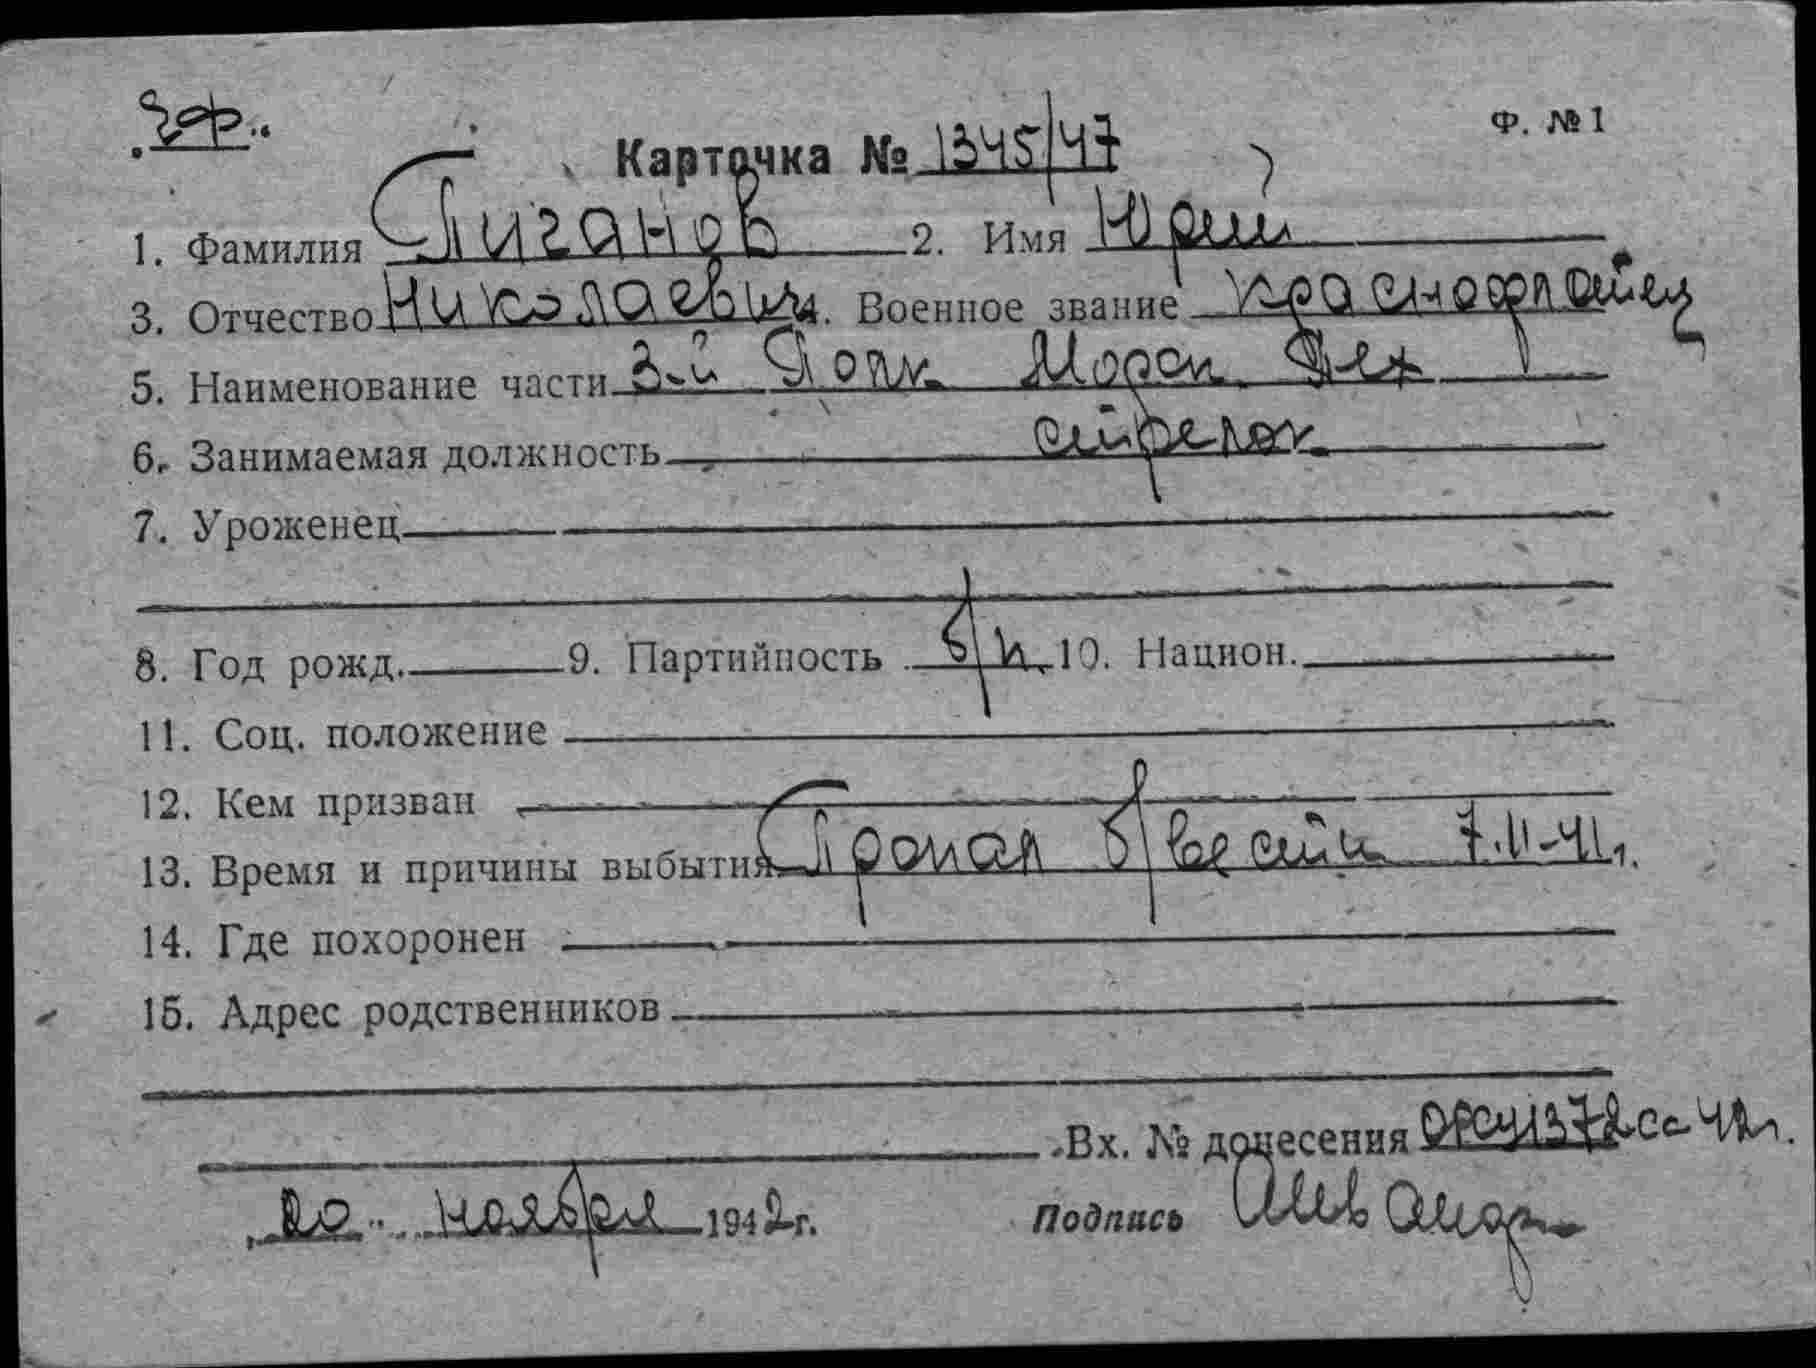 чф.
Ф. № 1
Карточка № 1345/47
1. Фамилия Пиганов 2. Имя Юрий
3. Отчество Николаевич 4. Военное звание краснофлотец
5. Наименование части 3-й Полк Морск Пех
6. Занимаемая должность стрелок
7. Уроженец
8. Год рожд. 9. Партийность б/п. 10. Национ.
11. Соц. положение
12. Кем призван
13. Время и причины выбытия Пропал б/вести 7.11-41г.
14. Где похоронен
15. Адрес родственников
Вх. № донесения 1372сс 42г.
20 ноября 1942г. Подпись